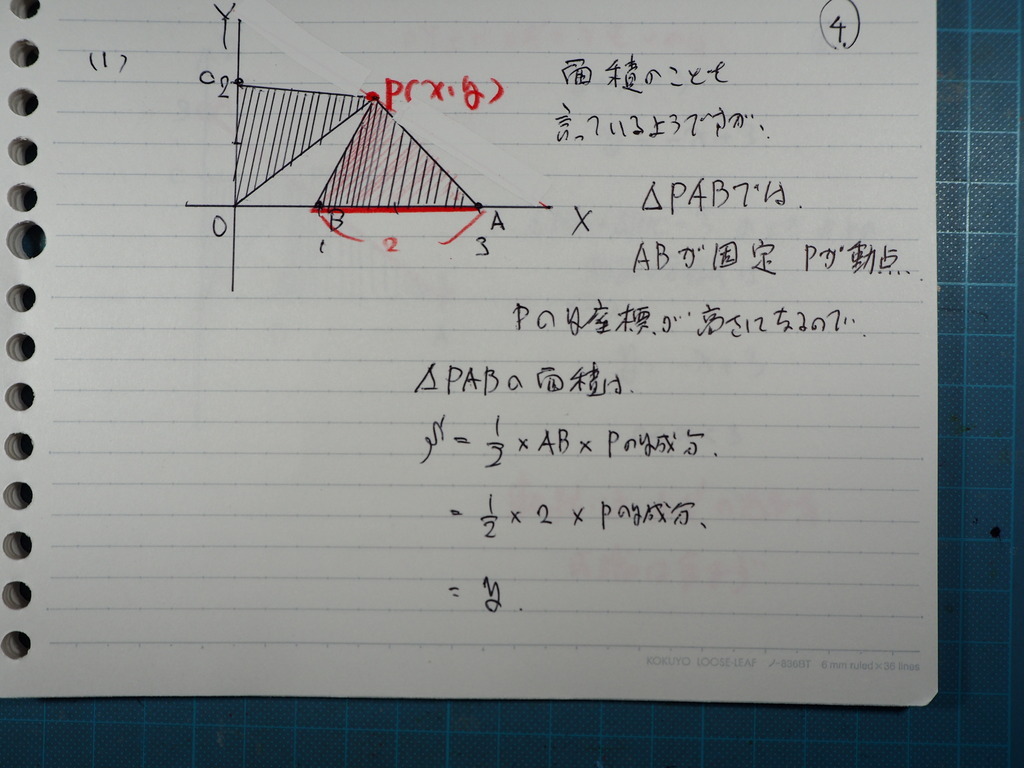 ④
(1)
Y
C
2
P(x,y)
O
B
A
X
1
2
3
面積のことも
言っているようですが、
△PABでは、
ABが固定 Pが動点、
Pのy座標が高さになるので、
△PABの面積は、
= 1/2 × AB × Pのy成分、
= 1/2 × 2 × Pのy成分、
= y.
KOKUYO LOOSE-LEAF ノ-836BT 6 mm ruled × 36 lines